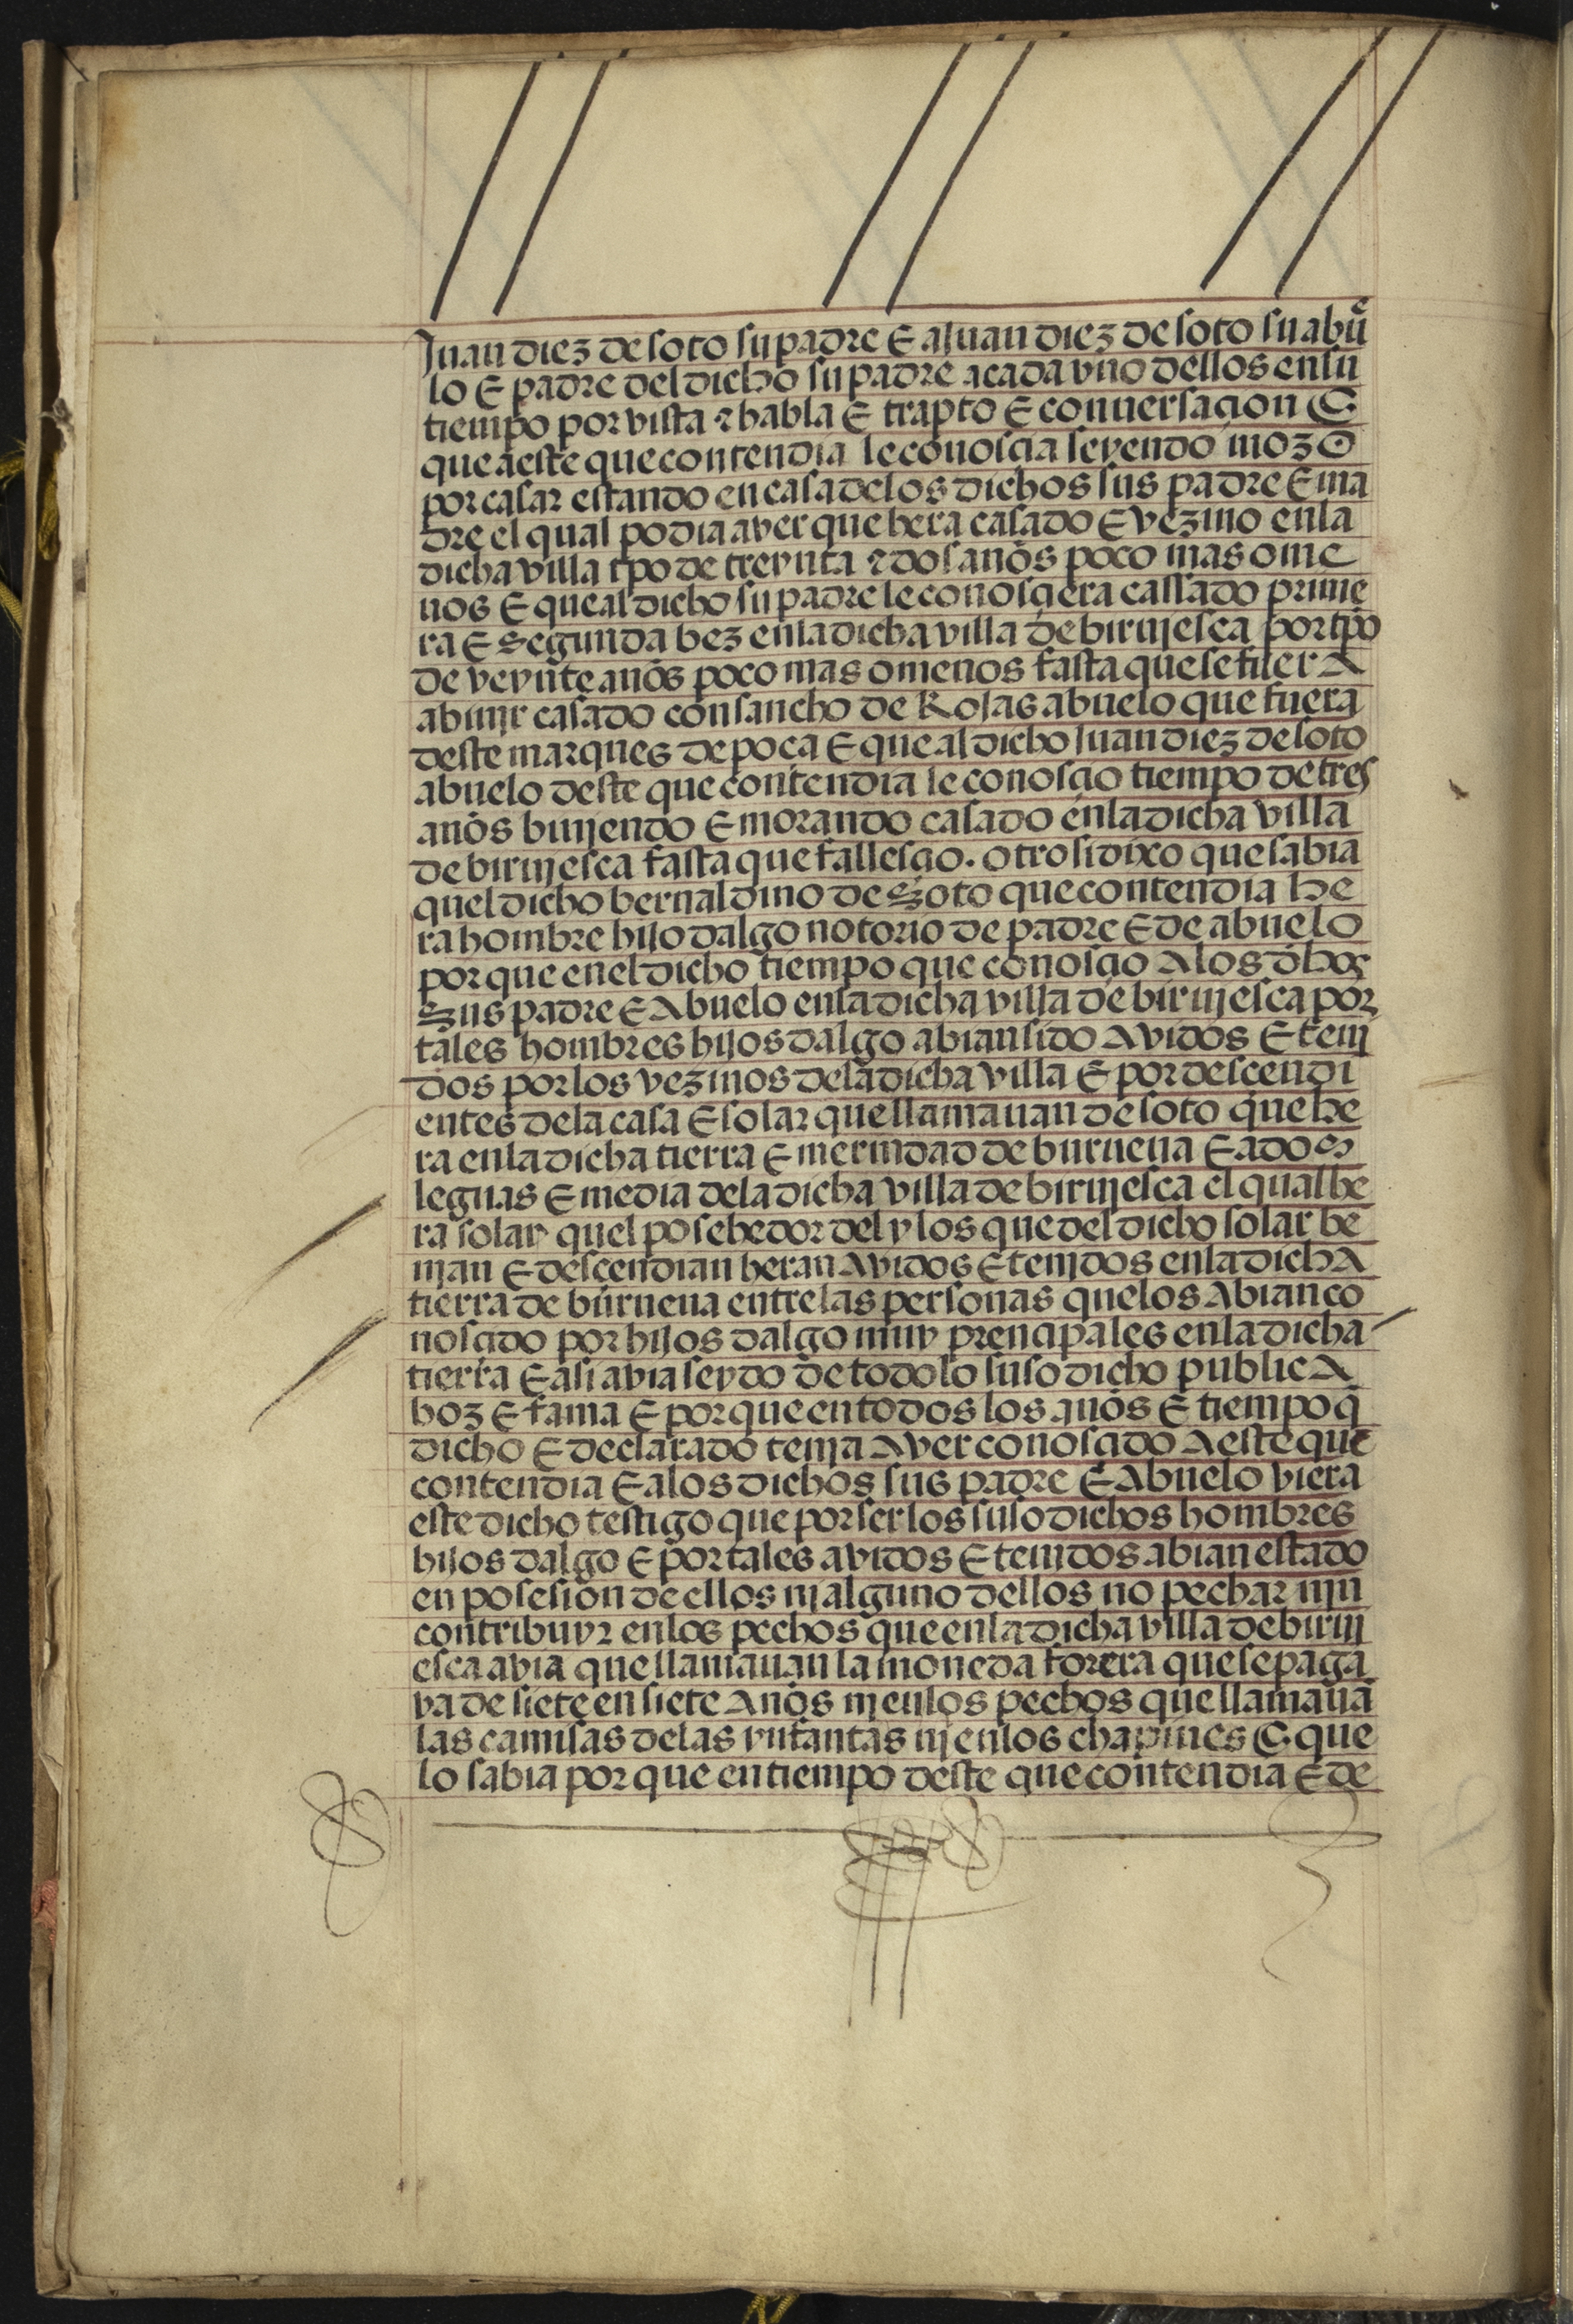 Juan diez de soto su padre E a Juan diez de soto su abue
lo E padre del dicho su padre a cada vno dellos en su
tiempo por vista e habla E trapto E conuersaçion E
que a este que contendia le conosçia seyendo mozo
por casar estando en casa de los dichos sus padre E ma
dre el qual podia aver que hera casado E vezino en la
dicha villa tpo de treynta e dos años poco mas o me
nos E que al dicho su padre le conosçiera cassado prime
ra E segunda bez en la dicha villa de birujesca por tpo
de veynte años poco mas o menos fasta que se fuera
a biujr casado con sancho de Rojas abuelo que fuera
deste marques de poça E que al dicho Juan diez de soto
abuelo deste que contendia le conosçio tiempo de tres
años biujendo E morando casado en la dicha villa
de birujesca fasta que fallesçio. otrosi dixo que sabia
quel dicho bernaldino de Soto que contendia he
ra hombre hijo dalgo notorio de padre E de abuelo
por que en el dicho tiempo que conosçio A los dhos
Sus padre E Abuelo en la dicha villa de birujesca por
tales hombres hijos dalgo abian sido Avidos E tenj
dos por los vezinos de la dicha villa E por descendi
entes de la casa E solar que llamauan de soto que he
ra en la dicha tierra E merindad de burueua E a dos
leguas E media de la dicha villa de birujesca el qual he
ra solar quel posehedor del y los que del dicho solar be
njan E desçendian heran Avidos E tenjdos en la dicha
tierra de burueua entre las personas que los Abian co
nosçido por hijos dalgo muy prençipales en la dicha
tierra E asi avia seydo de todo lo suso dicho publica
boz E fama E por que en todos los años E tiempo q̃
dicho E declarado tenja Aver conosçido A este que
contendia E a los dichos sus padre E Abuelo viera
este dicho testigo que por ser los suso dichos hombres
hijos dalgo E por tales avidos E tenidos abian estado
en posesion de ellos nj alguno dellos no pechar njn
contribuyr en los pechos que en la dicha villa de biruj
esca avia que llamauan la moneda forera que se paga
va de siete en siete Años nj en los pechos que llamauã
las camisas de las ynfantas nj en los chapines E que
lo sabia por que en tiempo deste que contendia E de